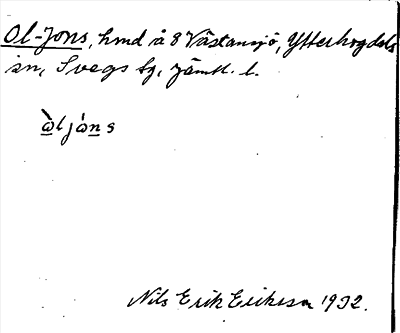 Ol-Jons, hmd å 8 Västansjö, Ytterhogdals
sn, Svegs tg, Jämtl. l.
òljòns
Nils Erik Eriksson 1932.